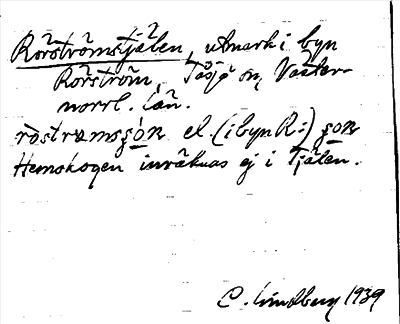 Rörströmstjälen, utmark i byn
Rörström, Tåsjö sn, Väster-
norrl. län.
rö̀strʉmsʂón el. (i byn R:) ʂon
Hemskogen inräknas ej i Tjälen.
C. Lindberg 1939